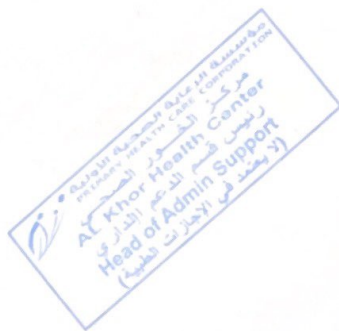 مؤسسة الرعاية الصحية الأولية
PRIMARY HEALTH CARE CORPORATION
مركز الخور الصحي
AL Khor Health Center
رئيس قسم الدعم الإداري
Head of Admin Support
(لا يعتمد في الإجازات الطبية)